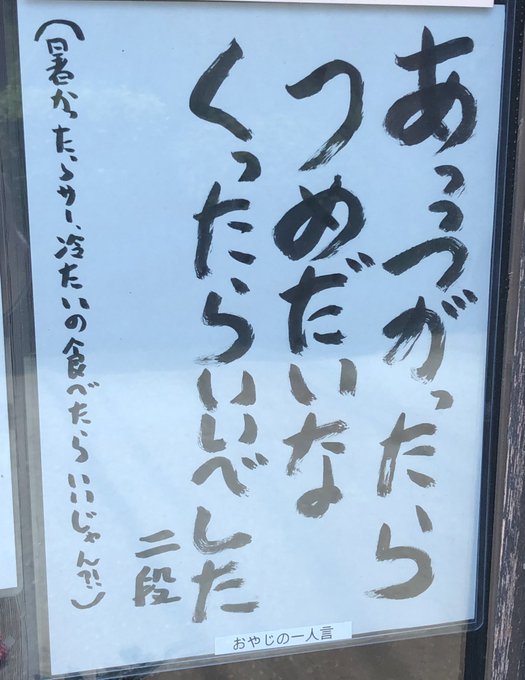 あっつがったら
つめだいな
くったらいいべした
二段
(暑かったらサー、冷たいの食べたらいいじゃん?!)
おやじの一人言